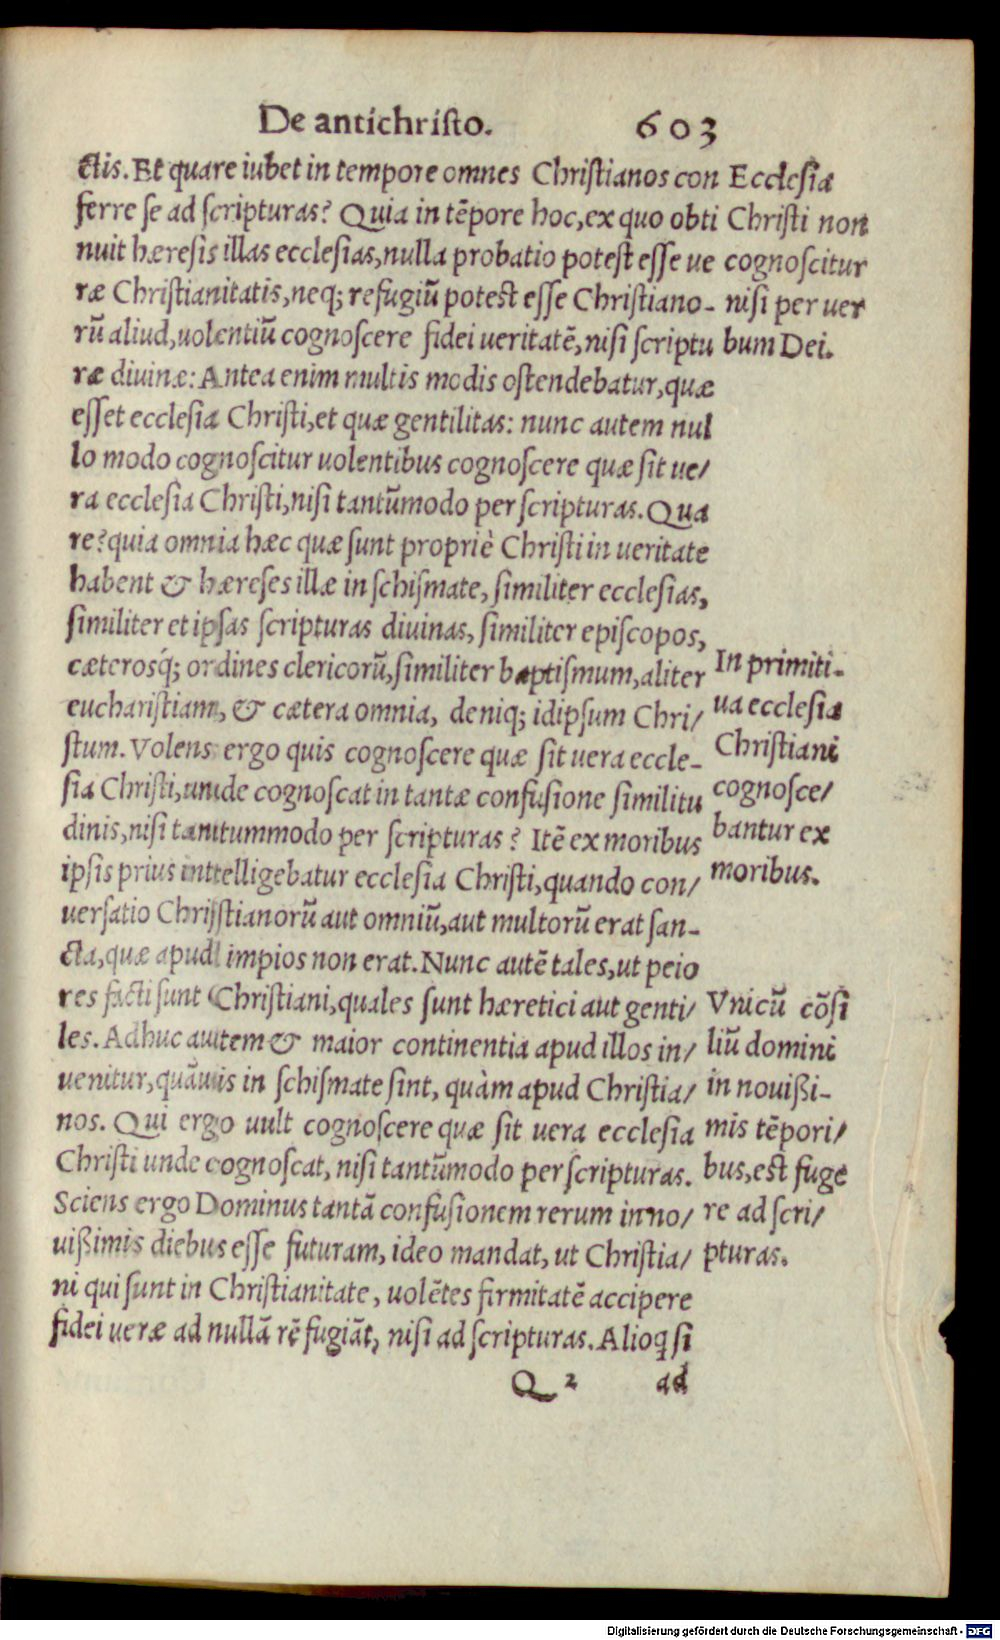 De antichristo. 603
ctis. Et quare iubet in tempore omnes Christianos con
ferre se ad scripturas? Quia in tẽpore hoc, ex quo obti
nuit hæresis illas ecclesias, nulla probatio potest esse ue
ræ Christianitatis, neq; refugiũ potest esse Christiano-
rũ aliud, uolentiũ cognoscere fidei ueritatẽ, nisi scriptu
ræ diuinæ: Antea enim multis modis ostendebatur, quæ
esset ecclesia Christi, et quæ gentilitas: nunc autem nul
lo modo cognoscitur uolentibus cognoscere quæ sit ue/
ra ecclesia Christi, nisi tantũmodo per scripturas. Qua
re? quia omnia hæc quæ sunt propriè Christi in ueritate
habent & hæreses illæ in schismate, similiter ecclesias,
similiter et ipsas scripturas diuinas, similiter episcopos,
cæterosq́; ordines clericorũ, similiter baptismum, aliter
eucharistiam, & cætera omnia, deniq; idipsum Chri/
stum. Volens ergo quis cognoscere quæ sit uera eccle-
sia Christi, unde cognoscat in tantæ confusione similitu
dinis, nisi tantummodo per scripturas? Itẽ ex moribus
ipsis prius intelligebatur ecclesia Christi, quando con/
uersatio Christianorũ aut omniũ, aut multorũ erat san-
cta, quæ apud impios non erat. Nunc autẽ tales, ut peio
res facti sunt Christiani, quales sunt hæretici aut genti/
les. Adhuc autem & maior continentia apud illos in/
uenitur, quãuis in schismate sint, quàm apud Christia/
nos. Qui ergo uult cognoscere quæ sit uera ecclesia
Christi unde cognoscat, nisi tantũmodo per scripturas.
Sciens ergo Dominus tantã confusionem rerum in no/
uißimis diebus esse futuram, ideo mandat, ut Christia/
ni qui sunt in Christianitate, uolẽtes firmitatẽ accipere
fidei ueræ ad nullã rẽ fugiãt, nisi ad scripturas. Alioq si
Q 2 ad
Ecclesiæ
Christi non
cognoscitur
nisi per uer
bum Dei.
In primiti-
ua ecclesia
Christiani
cognosce/
bantur ex
moribus.
Vnicũ cõsi
liũ domini
in nouißi-
mis tẽpori/
bus, est fuge
re ad scri/
pturas.
Digitalisierung gefördert durch die Deutsche Forschungsgemeinschaft - DFG